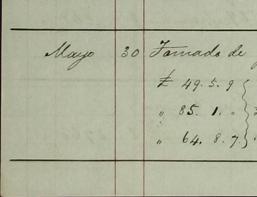 Mayo 30 Tomado de
£ 49. 5. 9
" 85. 1. "
" 64. 8. 7.